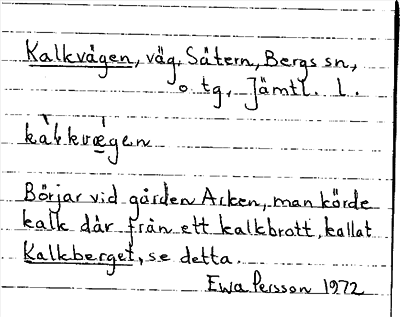 Kalkvägen, väg, Sätern, Bergs sn,
o. tg, Jämtl. l.
kàlkvæ̀gen
Börjar vid gården Acken, man körde
kalk där från ett kalkbrott, kallat
Kalkberget, se detta.
Ewa Persson 1972